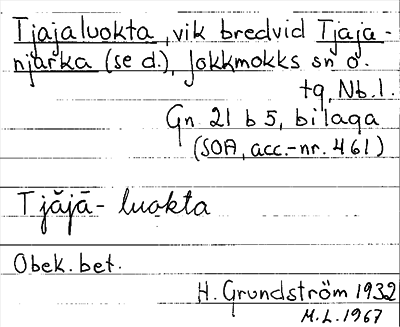 Tjajaluokta, vik bredvid Tjaja-
njarka (se d.), Jokkmokks sn o.
tg, Nb.l.
Gn 21 b 5, bilaga
(SOA, acc.-nr. 461)
Tjăjā- luokta
Obek. bet.
H. Grundström 1932
M.L. 1967